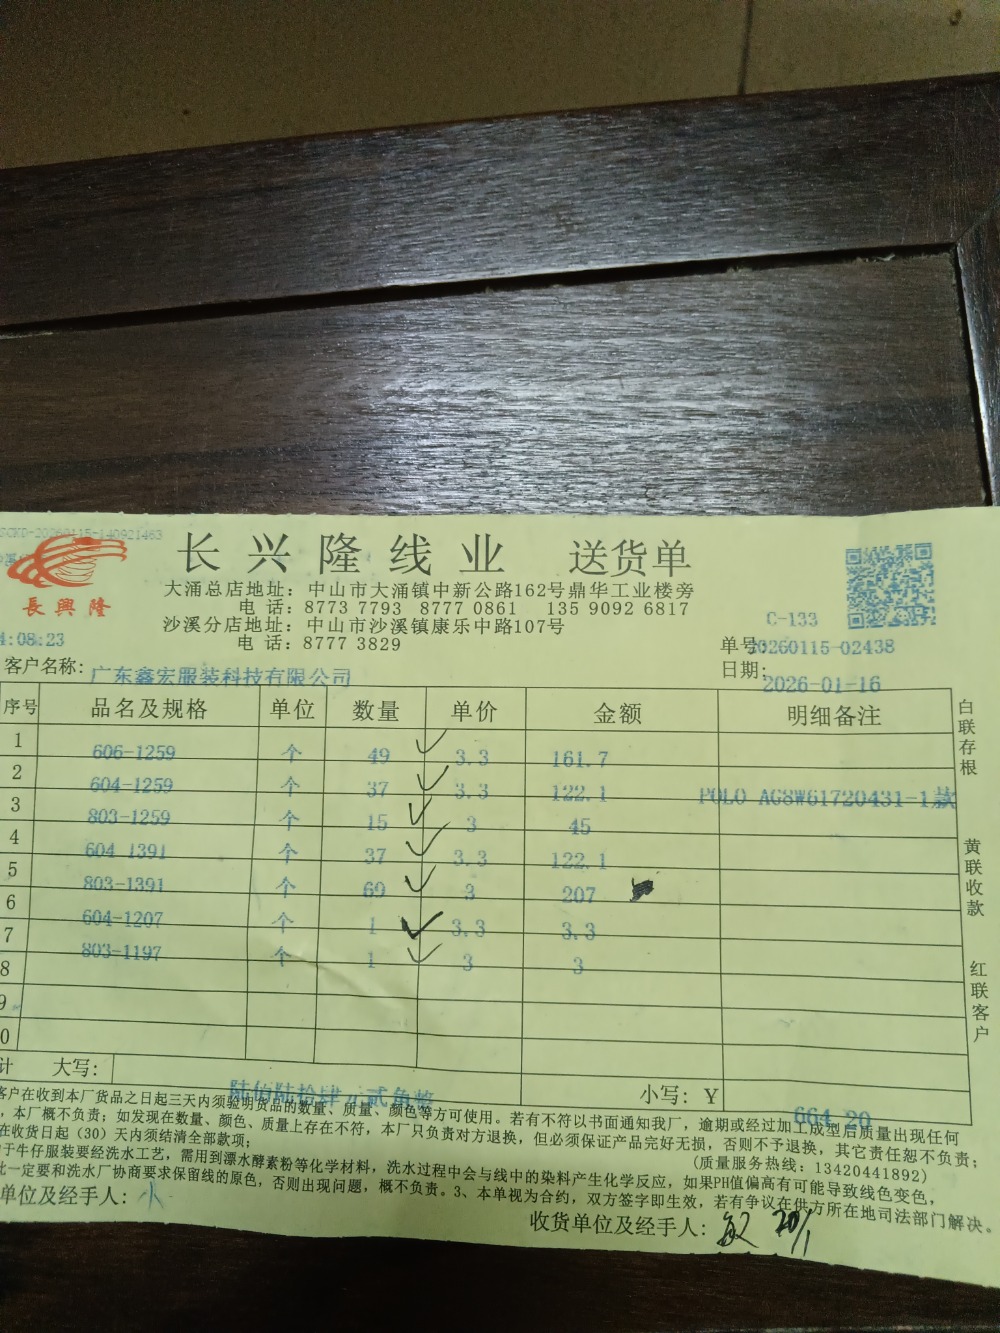 SCKD-20260115-140921463
长兴隆线业 送货单
長興隆
大涌总店地址：中山市大涌镇中新公路162号鼎华工业楼旁
电话：8773 7793 8777 0861 135 9092 6817
沙溪分店地址：中山市沙溪镇康乐中路107号
电话：8777 3829
C-133
4:08:23
单号:20260115-02438
客户名称：广东鑫宏服装科技有限公司
日期：2026-01-16
序号 品名及规格 单位 数量 单价 金额 明细备注
1 606-1259 个 49 3.3 161.7
2 604-1259 个 37 3.3 122.1 POLO AG8W61720431-1款
3 803-1259 个 15 3 45
4 604-1391 个 37 3.3 122.1
5 803-1391 个 69 3 207
6 604-1207 个 1 3.3 3.3
7 803-1197 个 1 3 3
8
9
0
白联存根
黄联收款
红联客户
计 大写：陆佰陆拾肆元贰角整 小写：Y 664.20
客户在收到本厂货品之日起三天内须验明货品的数量、质量、颜色等方可使用。若有不符以书面通知我厂，逾期或经过加工成型后质量出现任何
，本厂概不负责；如发现在数量、颜色、质量上存在不符，本厂只负责对方退换，但必须保证产品完好无损，否则不予退换，其它责任恕不负责；
在收货日起（30）天内须结清全部款项； (质量服务热线：13420441892)
于牛仔服装要经洗水工艺，需用到漂水酵素粉等化学材料，洗水过程中会与线中的染料产生化学反应，如果PH值偏高有可能导致线色变色，
此一定要和洗水厂协商要求保留线的原色，否则出现问题，概不负责。3、本单视为合约，双方签字即生效，若有争议在供方所在地司法部门解决。
单位及经手人：
收货单位及经手人： 20/1